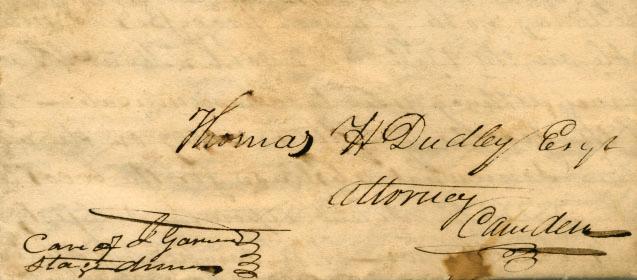 Thomas H Dudley Esqr
Attorney
Camden
Care of J Garwood
Stage driver